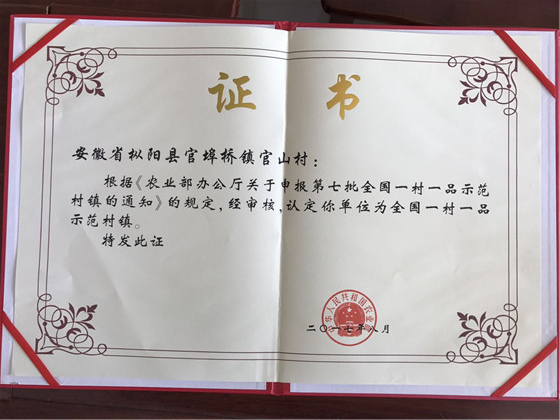 证书
安徽省枞阳县官埠桥镇官山村：
根据《农业部办公厅关于申报第七批全国一村一品示范
村镇的通知》的规定，经审核，认定你单位为全国一村一品
示范村镇。
特发此证
中华人民共和国农业部
二〇一七年八月